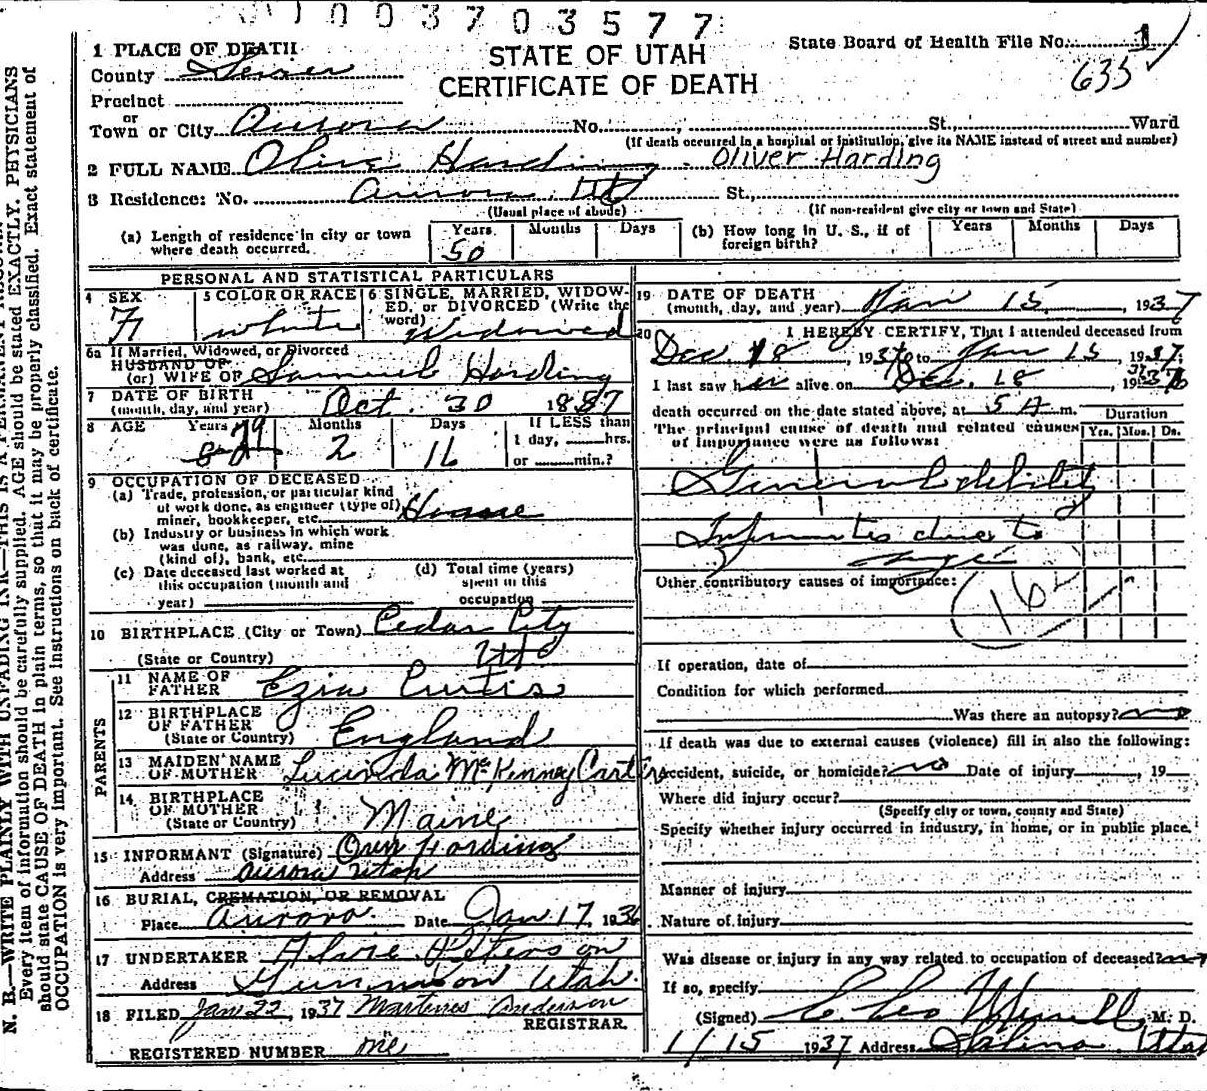 1003703577
1 PLACE OF DEATH
STATE OF UTAH
CERTIFICATE OF DEATH
State Board of Health File No. 1
635
County Sevier
Precinct
or
Town or City Aurora No. , St. Ward
(If death occurred in a hospital or institution, give its NAME instead of street and number)
2 FULL NAME Olive Harding Oliver Harding
3 Residence: No. Aurora Ut St.,
(Usual place of abode) (If non-resident give city or town and State)
(a) Length of residence in city or town where death occurred. Years 50 Months Days
(b) How long in U. S., if of foreign birth? Years Months Days
PERSONAL AND STATISTICAL PARTICULARS
4 SEX F
5 COLOR OR RACE white
6 SINGLE, MARRIED, WIDOWED, or DIVORCED (Write the word) Widowed
6a If Married, Widowed, or Divorced
HUSBAND OF
(or) WIFE OF Samuel Harding
7 DATE OF BIRTH
(month, day, and year) Oct. 30 1857
8 AGE Years 79 Months 2 Days 16 If LESS than
1 day, hrs.
or min.?
9 OCCUPATION OF DECEASED
(a) Trade, profession, or particular kind
of work done, as engineer (type of)
miner, bookkeeper, etc. House
(b) Industry or business in which work
was done, as railway, mine
(kind of), bank, etc.
(c) Date deceased last worked at
this occupation (month and
year)
(d) Total time (years)
spent in this
occupation
10 BIRTHPLACE (City or Town) Cedar City
(State or Country) Utah
PARENTS
11 NAME OF
FATHER Ezra Curtis
12 BIRTHPLACE
OF FATHER
(State or Country) England
13 MAIDEN NAME
OF MOTHER Lucinda McKenney Carter
14 BIRTHPLACE
OF MOTHER
(State or Country) Maine
15 INFORMANT (Signature) Orin Harding
Address Aurora Utah
16 BURIAL, CREMATION, OR REMOVAL
Place Aurora Date Jan 17, 1936
17 UNDERTAKER Alvie Peterson
Address Gunnison Utah
18 FILED Jan 22, 1937 Anderson
REGISTRAR.
REGISTERED NUMBER one
19 DATE OF DEATH
(month, day, and year) Jan 15, 1937
20 I HEREBY CERTIFY, That I attended deceased from
Dec. 18, 1936 to Jan 15, 1937;
I last saw her alive on Dec. 18, 1936
death occurred on the date stated above, at 5 A m.
Duration
The principal cause of death and related causes
of importance were as follows:
Yrs. Mos. Ds.
General debility
Infirmities due to
age
Other contributory causes of importance:
162
If operation, date of
Condition for which performed
Was there an autopsy? no
If death was due to external causes (violence) fill in also the following:
Accident, suicide, or homicide? no Date of injury , 19
Where did injury occur?
(Specify city or town, county and State)
Specify whether injury occurred in industry, in home, or in public place.
Manner of injury
Nature of injury
Was disease or injury in any way related to occupation of deceased? no
If so, specify
(Signed) M. D.
1/15 1937 Address Salina Utah
N. B.—WRITE PLAINLY WITH UNFADING INK—THIS IS A PERMANENT
Every item of information should be carefully supplied. AGE should be stated EXACTLY. PHYSICIANS
should state CAUSE OF DEATH in plain terms, so that it may be properly classified. Exact statement of
OCCUPATION is very important. See instructions on back of certificate.